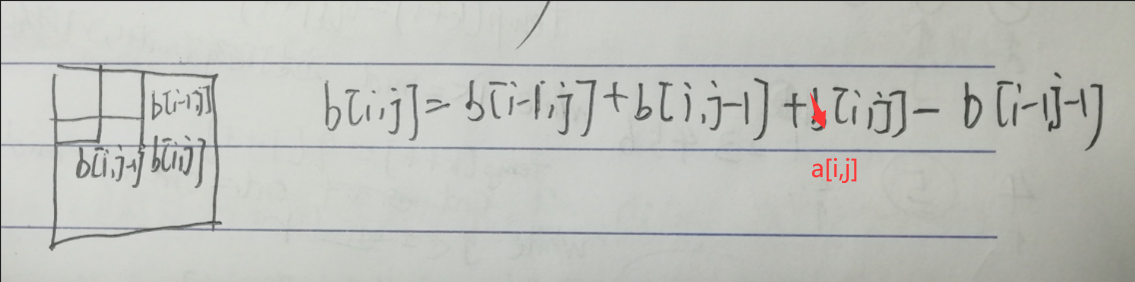 b[i-1,j]
b[i,j-1] b[i,j]
b[i,j] = b[i-1,j] + b[i,j-1] + b[i,j] - b[i-1,j-1]
a[i,j]